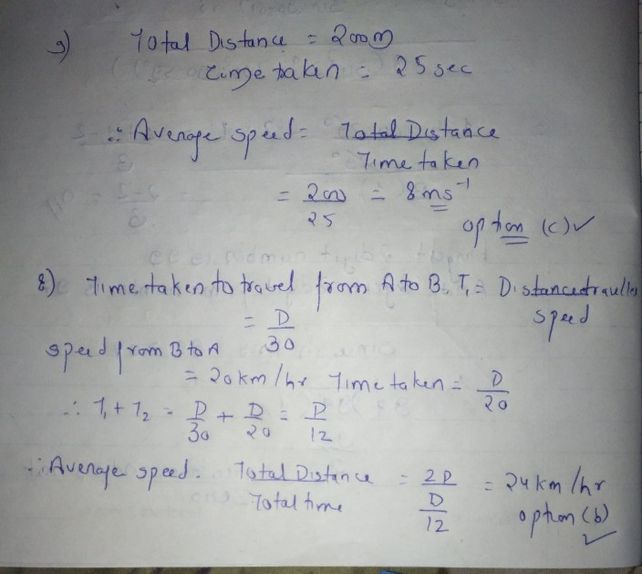 9) Total Distance = 200m
Time taken = 25 sec
∴ Average speed = Total Distance
Time taken
= 200 = 8 ms⁻¹
25
option (c) ✓
8) Time taken to travel from A to B. T₁ = Distance travelled
speed
= D
30
speed from B to A
= 20 km/hr Time taken = D
20
∴ T₁ + T₂ = D + D = D
30 20 12
∴ Average speed. Total Distance = 2D = 24 km/hr
Total time D
12
option (b)
✓